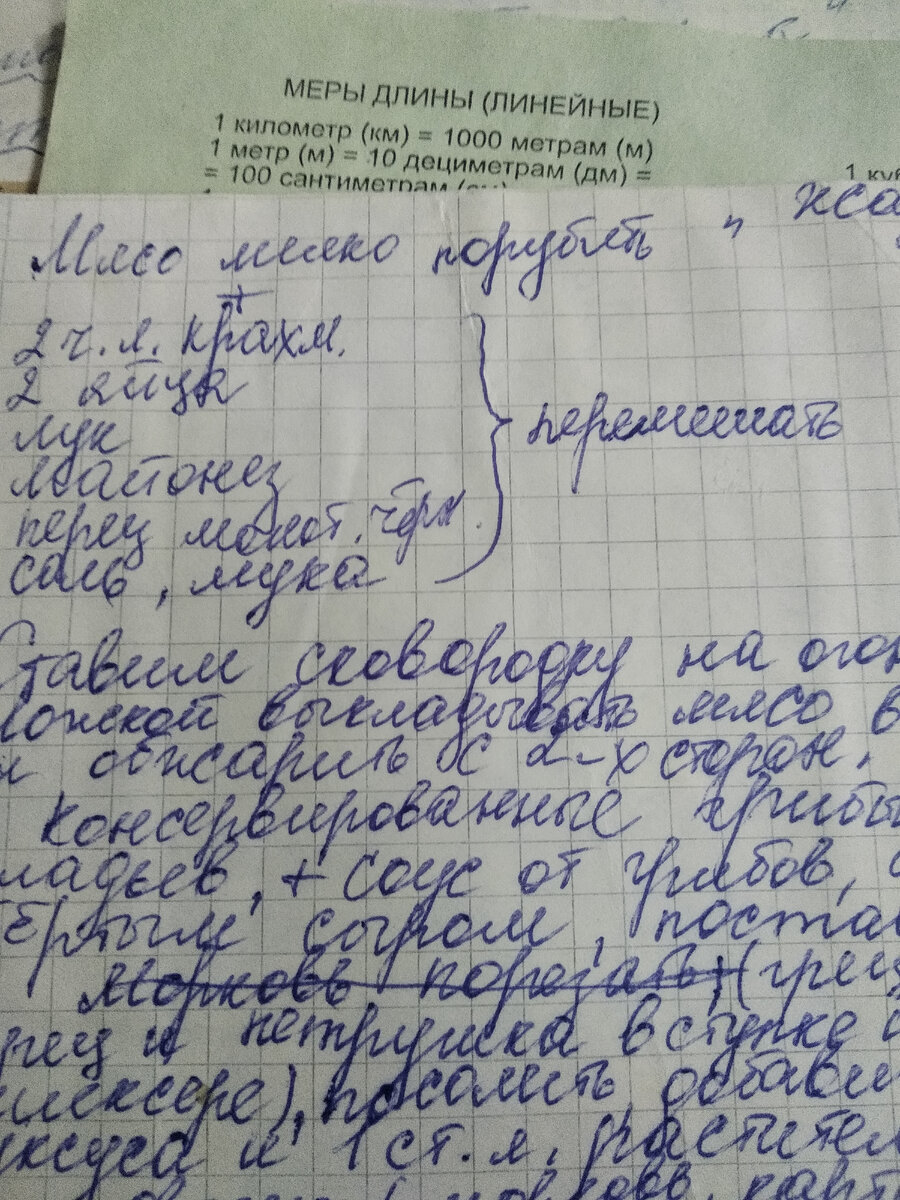 МЕРЫ ДЛИНЫ (ЛИНЕЙНЫЕ)
1 километр (км) = 1000 метрам (м)
1 метр (м) = 10 дециметрам (дм) =
= 100 сантиметрам (см)
1 куб
Мясо мелко порубить
+
2 ч.л. крахм.
2 яйца
лук
майонез
перец молот. чёрн.
соль, мука
перемешать
Ставим сковородку на огон
ложкой выкладывать мясо в
и обжарить с 2-х сторон.
Консервированные грибы
ладьев, + соус от грибов,
тёртым сыром, постав
Морковь порезать, (грец
рец и петрушка в ступке и
миксере), посолить, добави
уксуса и 1 ст. л. растител
морковь, карт